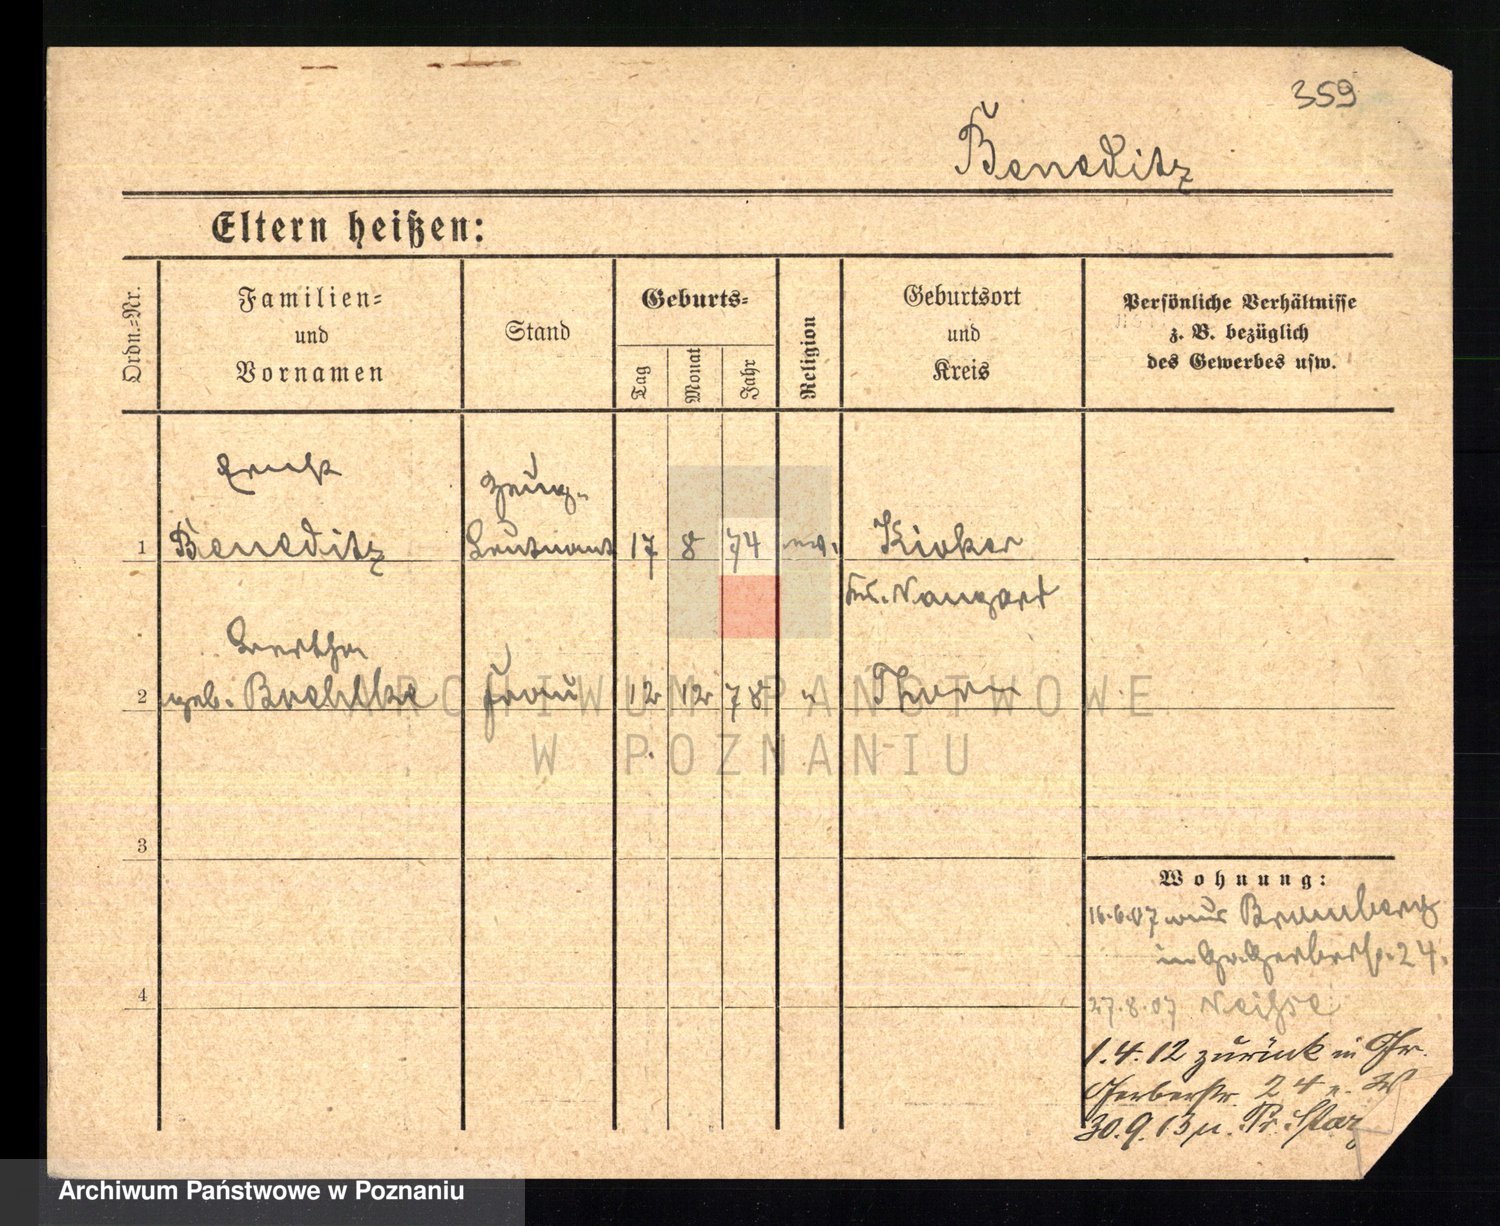 359
Beneditz
Eltern heißen:
Ordn.=Nr.
Familien=
und
Vornamen
Stand
Geburts=
Tag
Monat
Jahr
Religion
Geburtsort
und
Kreis
Persönliche Verhältnisse
z. B. bezüglich
des Gewerbes usw.
Erich Zeug-
1 Beneditz Leutnant 17 8 74 ev.
Kr. Naugard
Bertha
2 geb. Frau 12 12 78 " Thorn
3
4
Wohnung:
16.6.07 aus Bromberg
in Gr. Gerberstr. 24.
27.8.07 Neisse
1.4.12 zurück in Gr.
Gerberstr. 24
30.9.13 n. Pr. Star
ARCHIWUM PAŃSTWOWE
W POZNANIU
Archiwum Państwowe w Poznaniu